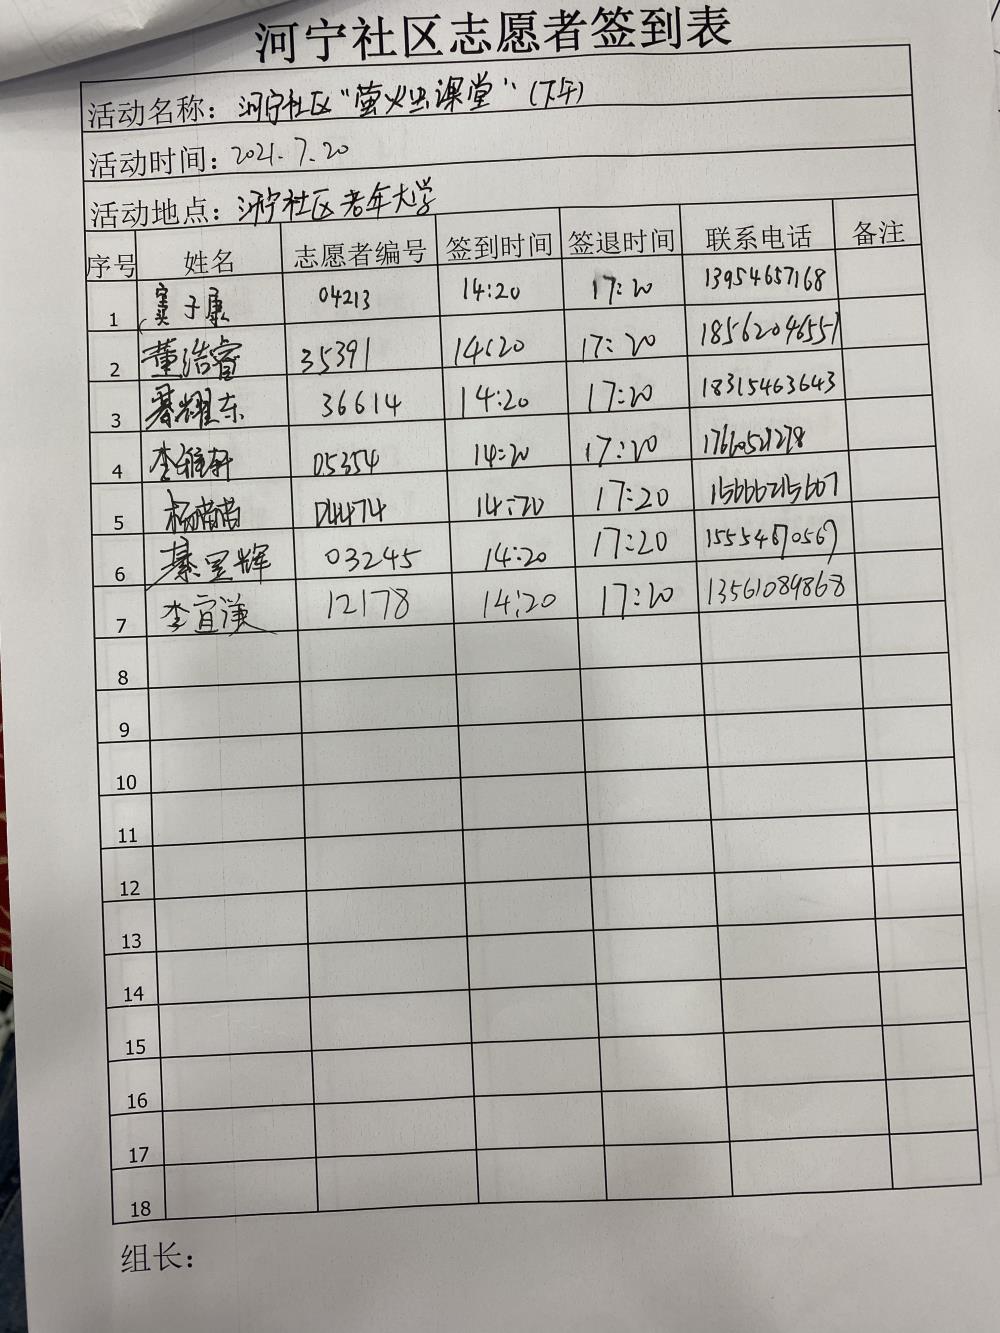 河宁社区志愿者签到表
活动名称：河宁社区“萤火虫课堂”（下午）
活动时间：2021.7.20
活动地点：河宁社区老年大学
序号 姓名 志愿者编号 签到时间 签退时间 联系电话 备注
1 窦子康 04213 14:20 17:20 13954657168
2 董浩睿 35391 14:20 17:20 18562046557
3 綦耀东 36614 14:20 17:20 18315463643
4 李维轩 05354 14:20 17:20 17660521278
5 杨喆喆 04474 14:20 17:20 15666215607
6 綦昱辉 03245 14:20 17:20 15554870567
7 李宜漢 12178 14:20 17:20 13561089868
8
9
10
11
12
13
14
15
16
17
18
组长：